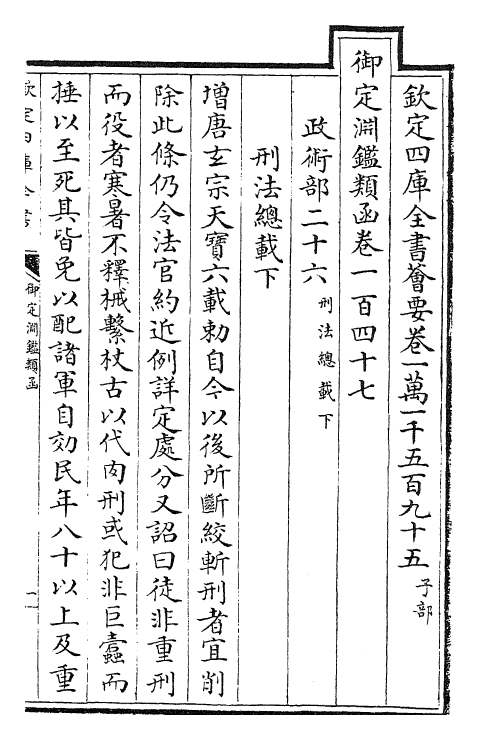 欽定四庫全書薈要卷一萬一千五百九十五 子部
御定淵鑑類函卷一百四十七
政術部二十六 刑法總載下
刑法總載下
增唐玄宗天寶六載勅自今以後所斷絞斬刑者宜削
除此條仍令法官約近例詳定處分又詔曰徒非重刑
而役者寒暑不釋械繫杖古以代肉刑或犯非巨蠹而
捶以至死其皆免以配諸軍自効民年八十以上及重
欽定四庫全書
御定淵鑑類函
一